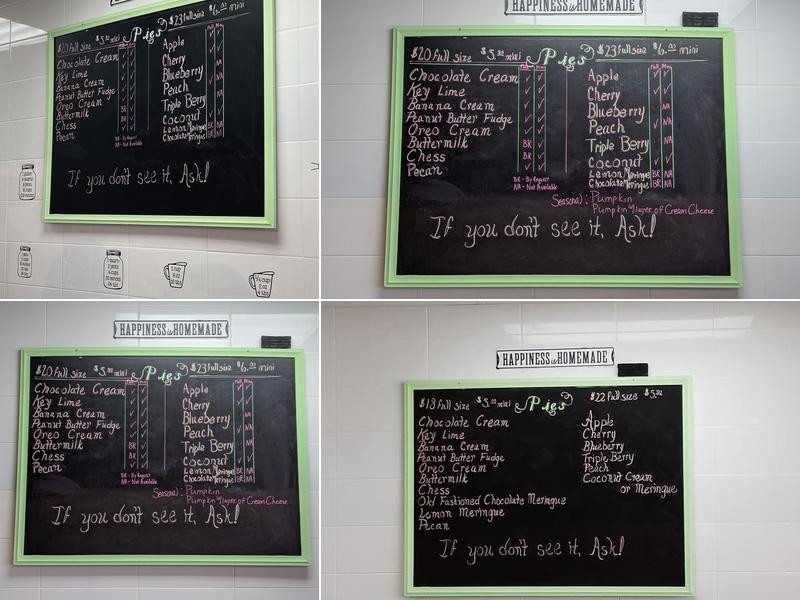 $20 full size $5.00 mini Pies $23 full size $6.00 mini
Chocolate Cream
Key Lime
Banana Cream
Peanut Butter Fudge
Oreo Cream
Buttermilk BR
Chess BR
Pecan
Apple
Cherry
Blueberry NA
Peach
Triple Berry NA
Coconut
Lemon Meringue BR NA
Chocolate Meringue BR NA
BR - By Request
NA - Not Available
If you don't see it, Ask!
HAPPINESS is HOMEMADE
$20 full size $5.00 mini Pies $23 full size $6.00 mini
Full Mini
Full Mini
Chocolate Cream
Key Lime
Banana Cream
Peanut Butter Fudge
Oreo Cream
Buttermilk BR
Chess BR
Pecan
Apple
Cherry
Blueberry NA
Peach
Triple Berry NA
Coconut
Lemon Meringue BR NA
Chocolate Meringue BR NA
BR - By Request
NA - Not Available
Seasonal: Pumpkin
Pumpkin w/ layer of Cream Cheese
If you don't see it, Ask!
HAPPINESS is HOMEMADE
$20 full size $5.00 mini Pies $23 full size $6.00 mini
Full Mini
Full Mini
Chocolate Cream
Key Lime
Banana Cream
Peanut Butter Fudge
Oreo Cream
Buttermilk BR
Chess BR
Pecan
Apple
Cherry
Blueberry NA
Peach
Triple Berry NA
Coconut
Lemon Meringue BR NA
Chocolate Meringue BR NA
BR - By Request
NA - Not Available
Seasonal: Pumpkin
Pumpkin w/ layer of Cream Cheese
If you don't see it, Ask!
HAPPINESS is HOMEMADE
$18 full size $5.00 mini Pies $22 full size
Chocolate Cream
Key Lime
Banana Cream
Peanut Butter Fudge
Oreo Cream
Buttermilk
Chess
Old Fashioned Chocolate Meringue
Lemon Meringue
Pecan
Apple
Cherry
Blueberry
Triple Berry
Peach
Coconut Cream
or Meringue
If you don't see it, Ask!